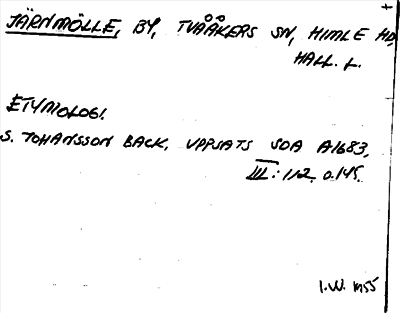 JÄRNMÖLLE, BY, TVÅÅKERS SN, HIMLE HD,
HALL. L.
ETYMOLOGI.
S. JOHANSSON BACK, UPPSATS SOA A1683,
III: 112 o. 145.
I.W. 1955